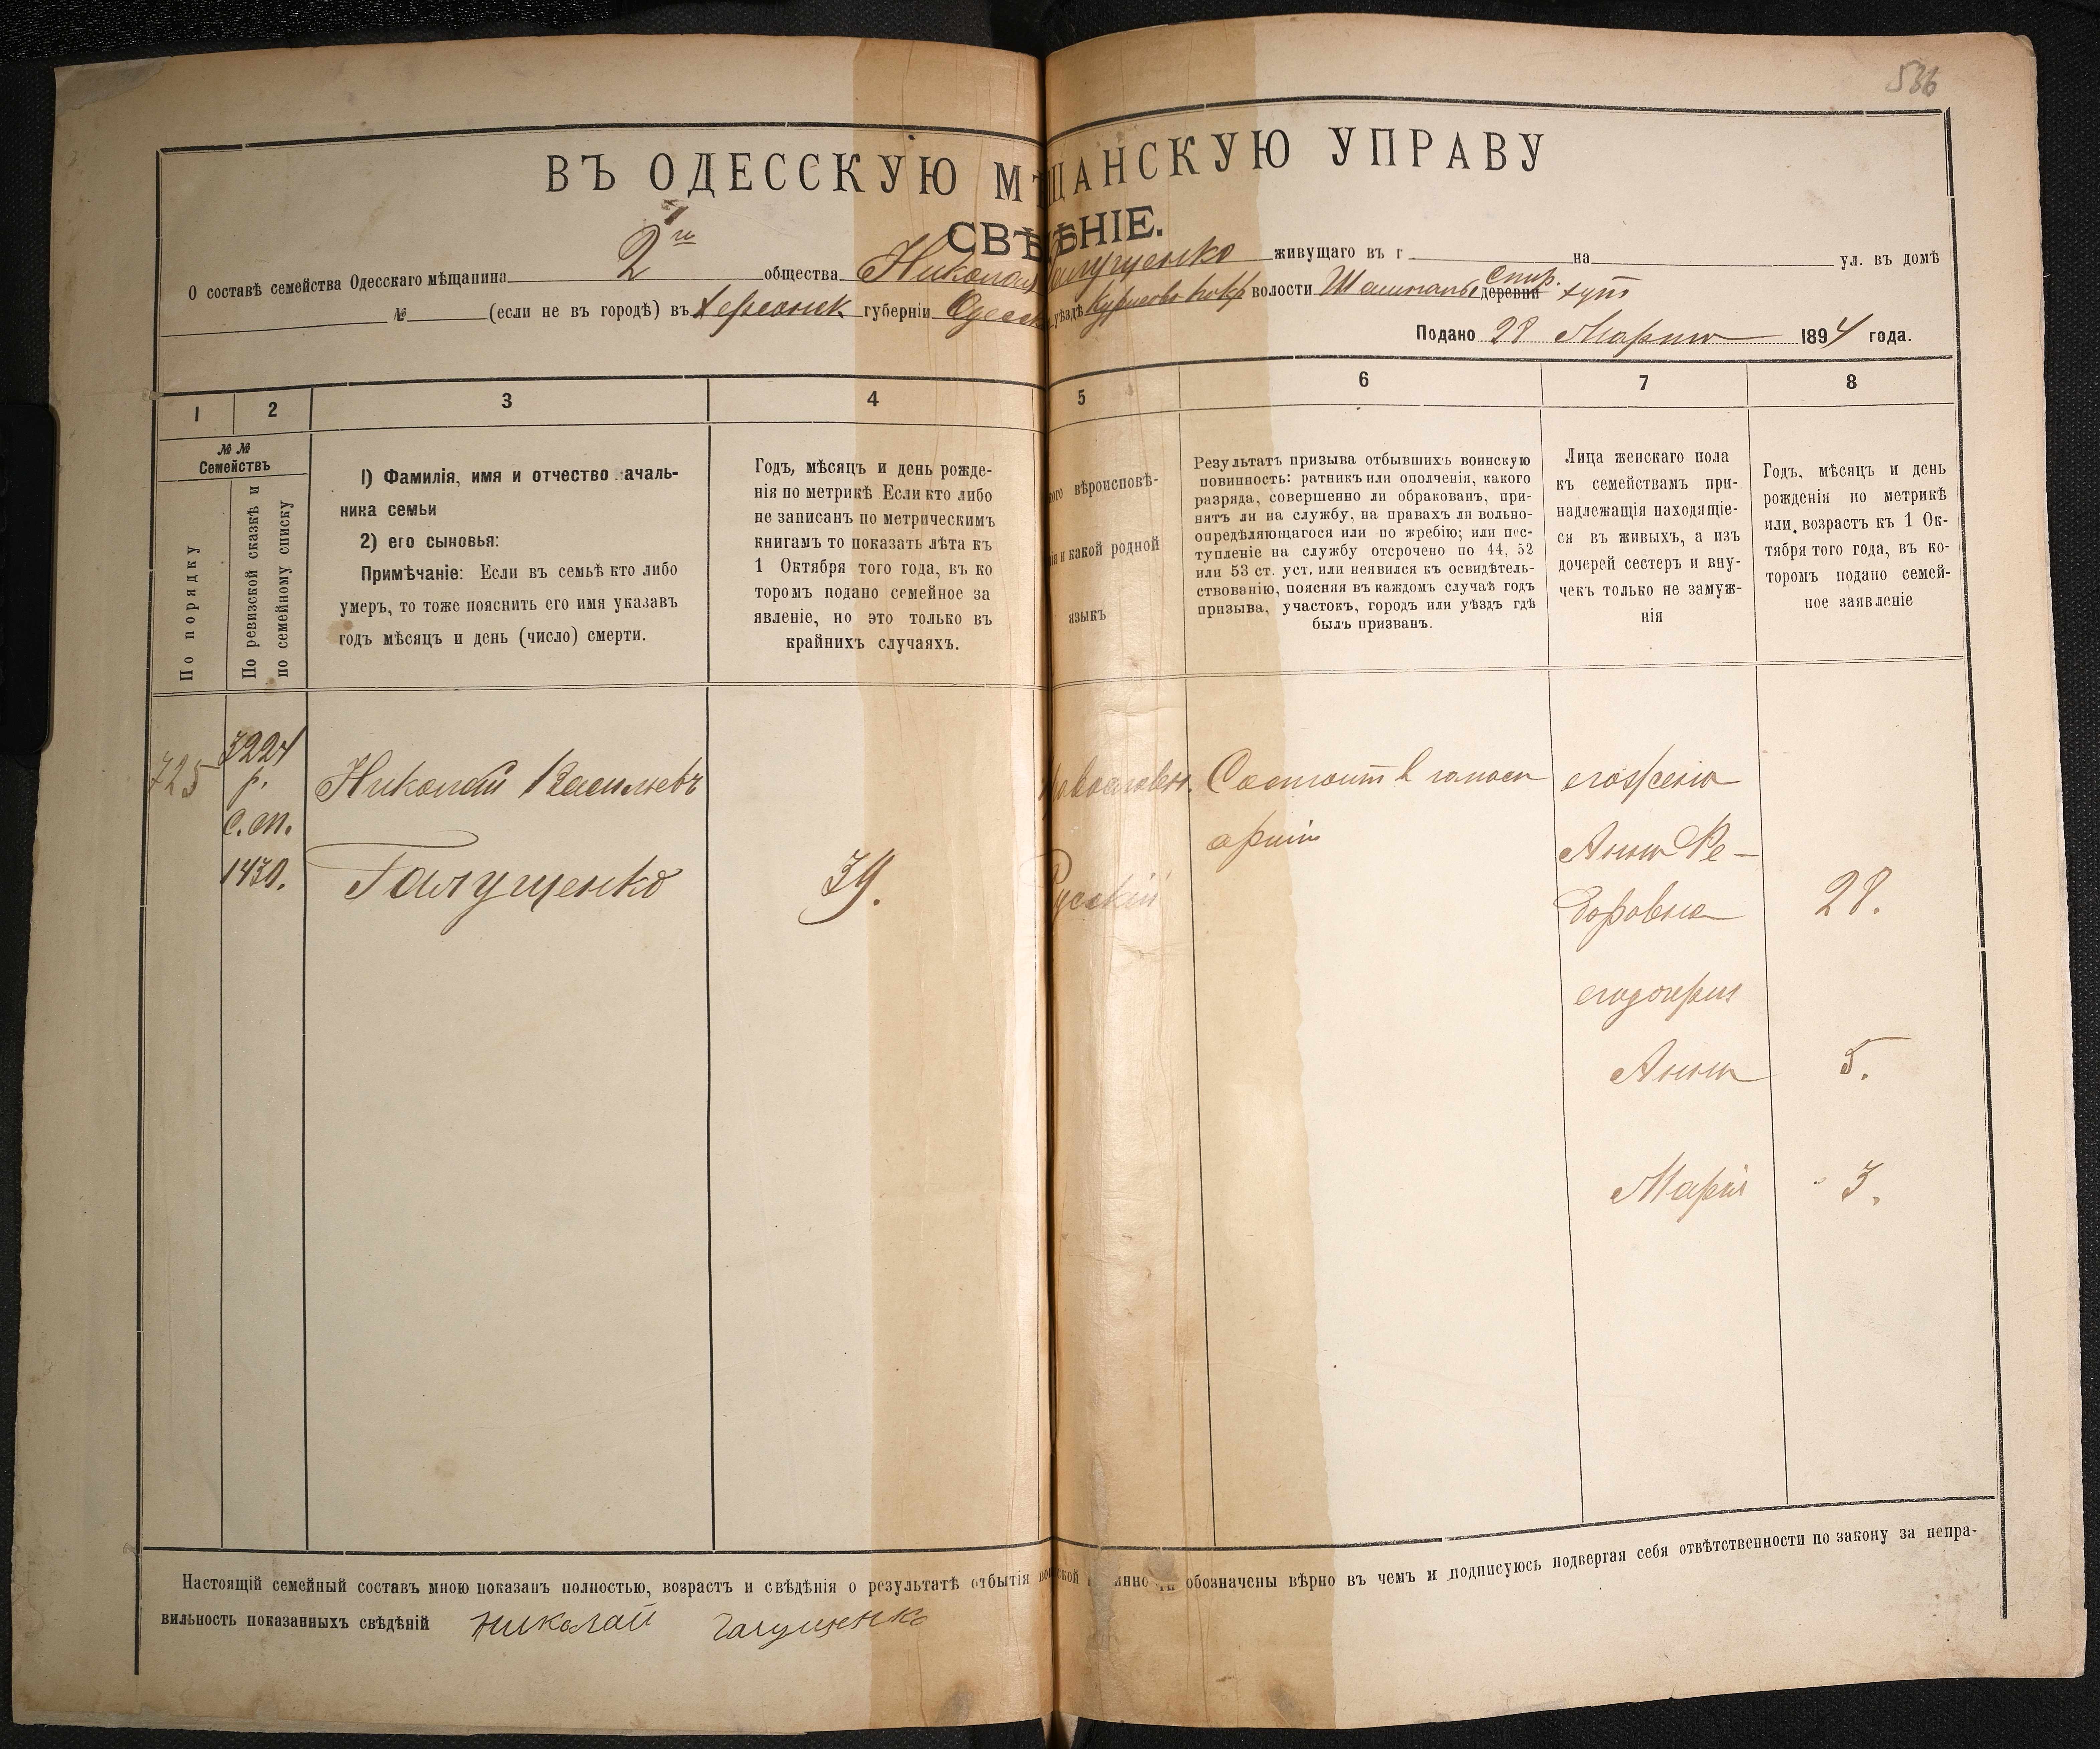 536
ВЪ ОДЕССКУЮ МѢЩАНСКУЮ УПРАВУ
СВѢДѢНІЕ.
О составѣ семейства Одесскаго мѣщанина 2го общества Николая Галущенко живущаго въ г на ул. въ домѣ
№ (если не въ городѣ) въ Херсонск губерніи Одесск уѣздѣ волости деревни хут
Подано 28 Марта 1894 года.
1 2 3 4 5 6 7 8
№ №
Семействъ
По порядку
По ревизской сказкѣ и
по семейному списку
1) Фамилія, имя и отчество ачаль-
ника семьи
2) его сыновья:
Примѣчаніе: Если въ семьѣ кто либо
умеръ, то тоже пояснить его имя указавъ
годъ мѣсяцъ и день (число) смерти.
Годъ, мѣсяцъ и день рожде-
нія по метрикѣ Если кто либо
не записанъ по метрическимъ
книгамъ то показать лѣта къ
1 Октября того года, въ ко
торомъ подано семейное за
явленіе, но это только въ
крайнихъ случаяхъ.
ого вѣроисповѣ-
ія и какой родной
языкъ
Результатъ призыва отбывшихъ воинскую
повинность: ратникъ или ополченія, какого
разряда, совершенно ли обракованъ, при-
нятъ ли на службу, на правахъ ли вольно-
опредѣляющагося или по жребію; или пос-
тупленіе на службу отсрочено по 44, 52
или 53 ст. уст. или неявился къ освидѣтель-
ствованію, поясняя въ каждомъ случаѣ годъ
призыва, участокъ, городъ или уѣздъ гдѣ
былъ призванъ.
Лица женскаго пола
къ семействамъ при-
надлежащія находящіе-
ся въ живыхъ, а изъ
дочерей сестеръ и вну-
чекъ только не замуж-
нія
Годъ, мѣсяцъ и день
рожденія по метрикѣ
или возрастъ къ 1 Ок-
тября того года, въ ко-
торомъ подано семей-
ное заявленіе
725
3224
р.
с. сп.
1430.
Николай Васильевъ
Галущенко
39.
Православн.
Русскій
Состоит в запасе
арміи
его жена
Анна Фе-
доровна
28.
его дочери
Анна
5.
Марія
3.
Настоящій семейный составъ мною показанъ полностью, возрастъ и свѣдѣнія о результатѣ отбытія обозначены вѣрно въ чемъ и подписуюсь подвергая себя отвѣтственности по закону за непра-
вильность показанныхъ свѣдѣній Николай Галущенко